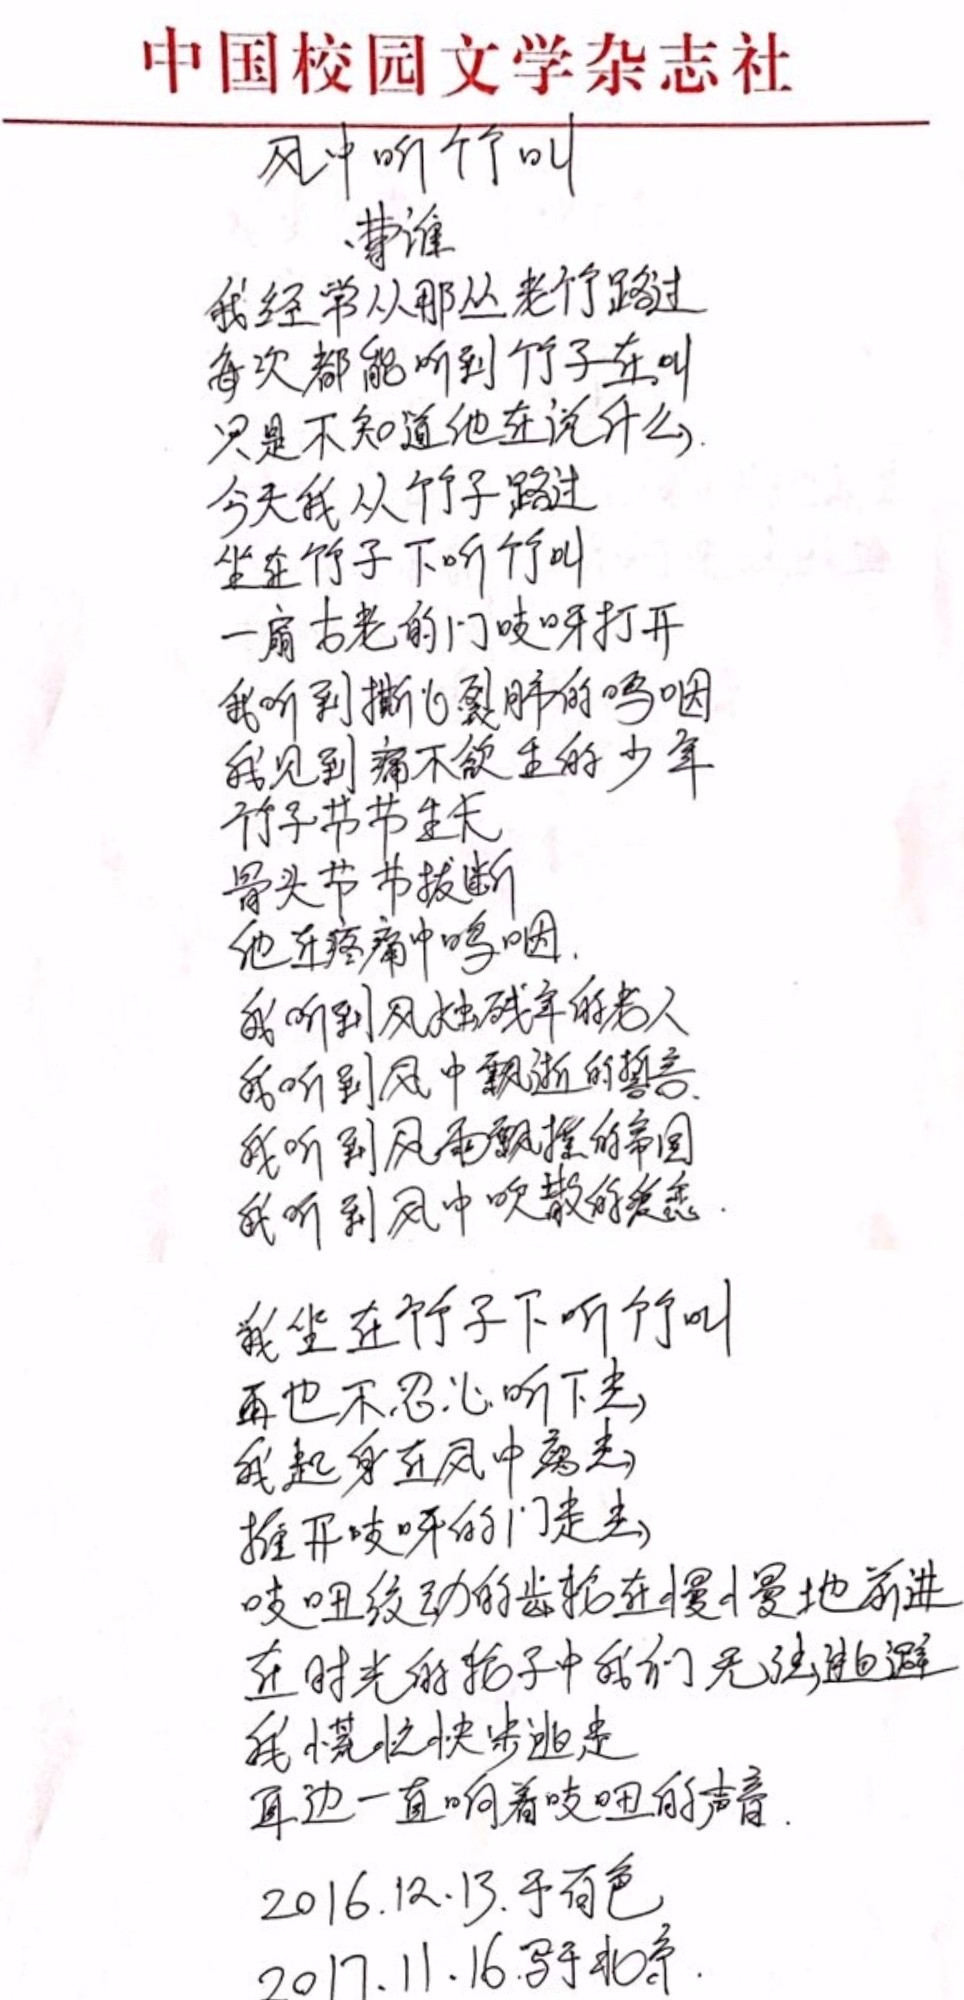 中国校园文学杂志社
风中听竹叫
曹谁
我经常从那丛老竹路过
每次都能听到竹子在叫
只是不知道他在说什么,
今天我从竹子路过
坐在竹子下听竹叫
一扇古老的门吱呀打开
我听到撕心裂肺的呜咽
我见到痛不欲生的少年
竹子节节生长
骨头节节拔断
他在疼痛中呜咽.
我听到风烛残年的老人
我听到风中飘逝的誓言.
我听到风雨飘摇的帝国
我听到风中吹散的爱恋.
我坐在竹子下听竹叫
再也不忍心听下去,
我起身在风中离去,
推开吱呀的门走去,
吱呀绞动的齿轮在慢慢地前进
在时光的轮子中我们无法逃避
我慌忙快步逃走
耳边一直响着吱呀的声音.
2016.12.13.于百色
2017.11.16.写于北京.